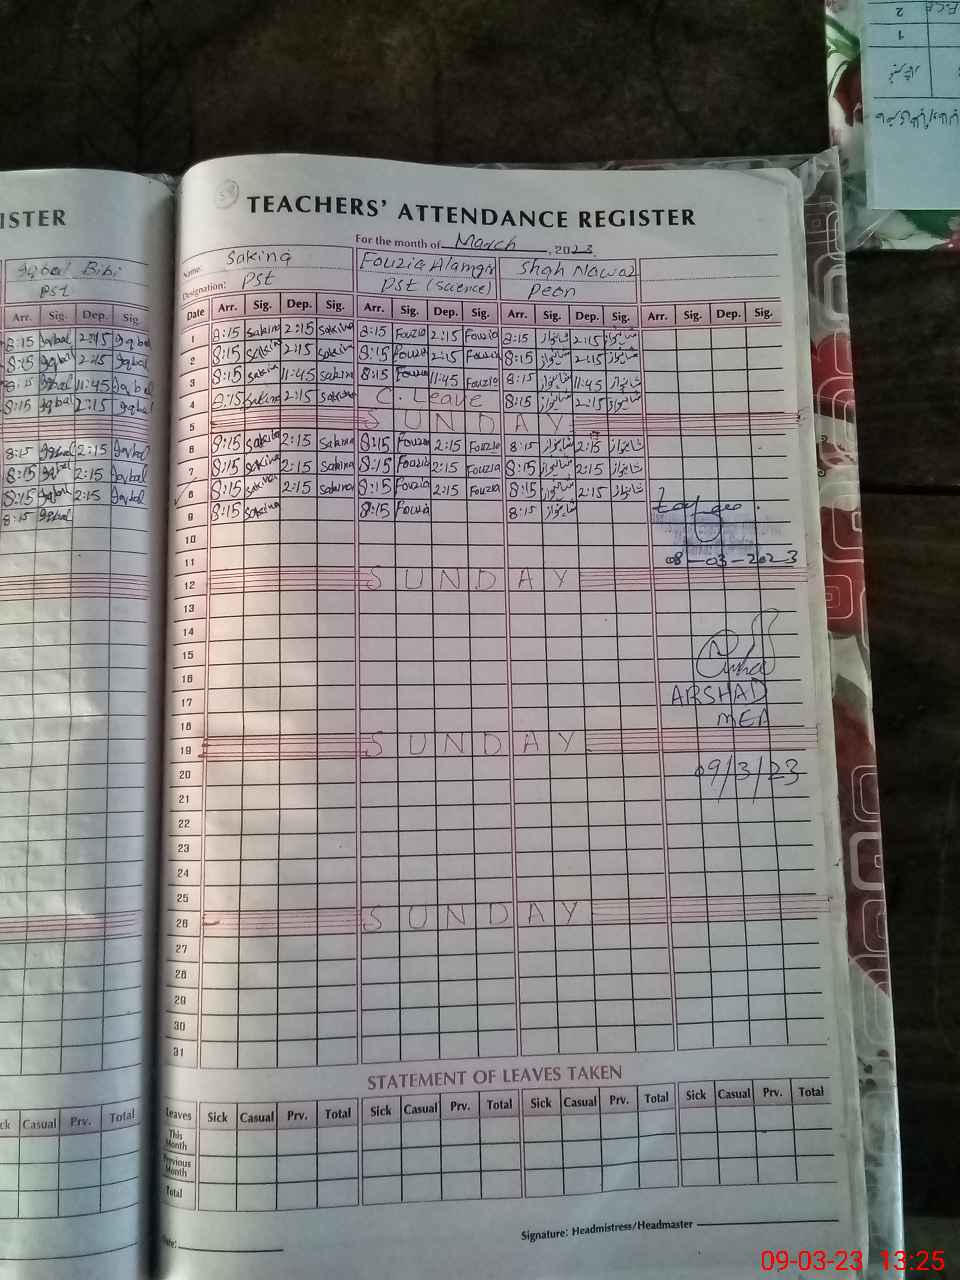 ISTER
Iqbal Bibi
PST
Arr. Sig. Dep. Sig.
8:15 Iqbal 2:15 Iqbal
8:15 Iqbal 2:15 Iqbal
8:15 Iqbal 11:45 Iqbal
8:15 Iqbal 2:15 Iqbal
8:15 Iqbal 2:15 Iqbal
8:15 Iqbal 2:15 Iqbal
8:15 Iqbal 2:15 Iqbal
8:15 Iqbal
ck Casual Prv. Total
TEACHERS' ATTENDANCE REGISTER
For the month of March, 2023.
Name: Sakina Fouzia Alamgir Shah Nawaz
Designation: PST PST (Science) Peon
Date Arr. Sig. Dep. Sig. Arr. Sig. Dep. Sig. Arr. Sig. Dep. Sig. Arr. Sig. Dep. Sig.
1 8:15 Sakina 2:15 Sakina 8:15 Fouzia 2:15 Fouzia 8:15 شاہنواز 2:15 شاہنواز
2 8:15 Sakina 2:15 Sakina 8:15 Fouzia 2:15 Fouzia 8:15 شاہنواز 2:15 شاہنواز
3 8:15 Sakina 11:45 Sakina 8:15 Fouzia 11:45 Fouzia 8:15 شاہنواز 11:45 شاہنواز
4 8:15 Sakina 2:15 Sakina C. Leave 8:15 شاہنواز 2:15 شاہنواز
5 SUNDAY
6 8:15 Sakina 2:15 Sakina 8:15 Fouzia 2:15 Fouzia 8:15 شاہنواز 2:15 شاہنواز
7 8:15 Sakina 2:15 Sakina 8:15 Fouzia 2:15 Fouzia 8:15 شاہنواز 2:15 شاہنواز
8 8:15 Sakina 2:15 Sakina 8:15 Fouzia 2:15 Fouzia 8:15 شاہنواز 2:15 شاہنواز
9 8:15 Sakina 8:15 Fouzia 8:15 شاہنواز
10
11 08-03-2023
12 SUNDAY
13
14
15
16
17 ARSHAD
18 MEA
19 SUNDAY
20 09/3/23
21
22
23
24
25
26 SUNDAY
27
28
29
30
31
STATEMENT OF LEAVES TAKEN
Leaves Sick Casual Prv. Total Sick Casual Prv. Total Sick Casual Prv. Total Sick Casual Prv. Total
This Month
Previous Month
Total
Signature: Headmistress/Headmaster
09-03-23 13:25